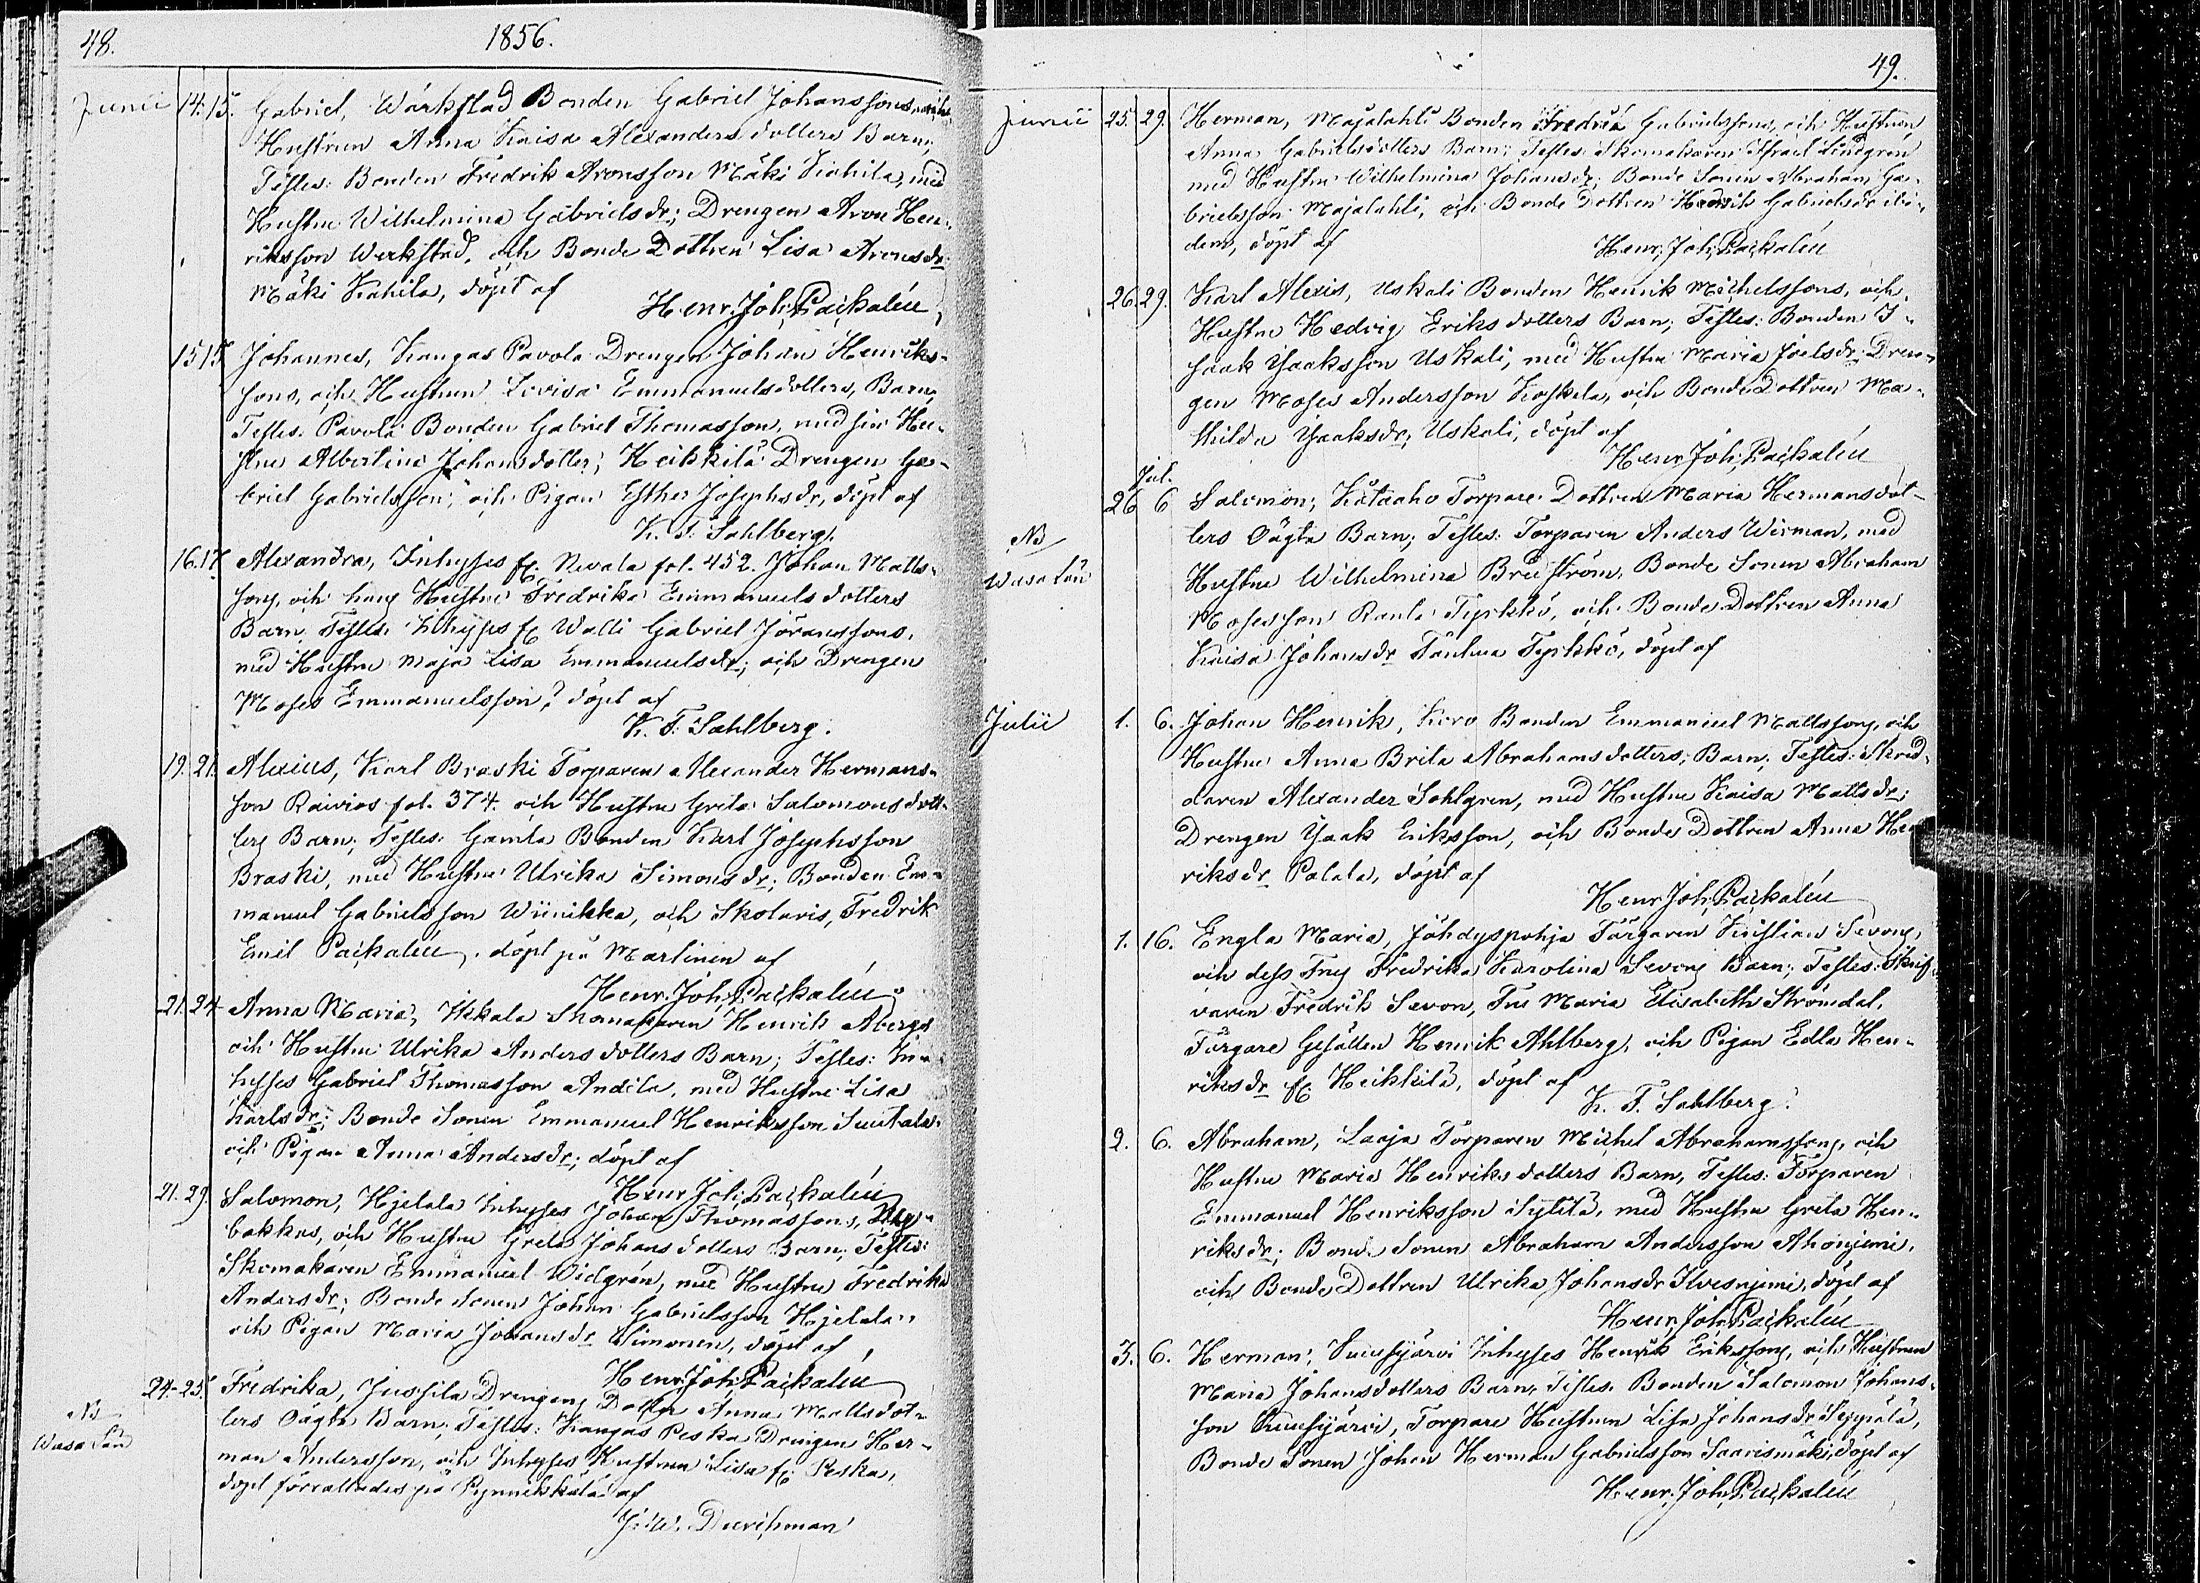 48.
1856.
Junii 14. 15. Gabriel, Wärkstad Bonden Gabriel Johanssons, och
Hustrun Anna Kaisa Alexanders dotters Barn;
Testes: Bonden Fredrik Aronsson Mäki Kahila, med
Hustru Wilhelmina Gabrielsdr; Drengen Aron Hen-
riksson Werkstad, och Bonde Dottren Lisa Aronsdr
Mäki Kahila, döpt af
Henr. Joh. Packalén
15 15. Johannes, Kangas Pavola Drengen Johan Henriks-
sons, och Hustrun Lovisa Emmanuelsdotters, Barn,
Testes: Pavola Bonden Gabriel Thomasson, med sin Hu-
stru Albertina Johansdotter; Heikkilä Drengen Ga-
briel Gabrielsson; och Pigan Esther Josephsdr, döpt af
K. F. Sahlberg.
16. 17. Alexandra, Inhyses fr. Nevala fol. 452. Johan Matts-
sons, och hans Hustru Fredrika Emmanuels dotters
Barn. Testes: Inhyses fr. Walli Gabriel Göranssons,
med Hustru Maja Lisa Emmanuelsdr; och Drengen
Moses Emmanuelsson, döpt af
K. F. Sahlberg.
19. 21. Alexius, Karl Braski Torparen Alexander Hermans-
son Raivios fol. 374. och Hustru Greta Salomons dott-
ers Barn; Testes: Gamla Bonden Karl Josephsson
Braski, med Hustru Ulrika Simonsdr; Bonden Em-
manuel Gabrielsson Wiinikka, och Skolaris, Fredrik
Emil Packalén, döpt på Martinen af
Henr. Joh. Packalén
21. 24. Anna Maria, Ikkala Skomakaren Henrik Åbergs
och Hustru Ulrika Anders dotters Barn; Testes: In-
hyses Gabriel Thomasson Andila, med Hustru Lisa
Karlsdr; Bonde Sonen Emmanuel Henriksson Suutala,
och Pigan Anna Andersdr; döpt af
Henr. Joh. Packalén
21. 29. Salomon, Hjelala Inhyses Johan Thomassons,
backas, och Hustru Greta Johans dotters Barn; Testes:
Skomakaren Emmanuel Widgrén, med Hustru Fredrika
Andersdr; Bonde Sonen Johan Gabrielsson Hjelala,
och Pigan Maria Johansdr Simonen, döpt af
Henr. Joh. Packalén
24. 25. Fredrika, Jussila Drengens Dotter Anna Mattsdot-
NB
Wasa Län
ters Oägta Barn; Testes: Kangas Peska Drengen Her-
man Andersson, och Inhyses Hustrun Lisa fr. Peska,
döpt förrättades på Pynnikkälä af
J. W. Durchman
49.
Junii 25. 29. Herman, Majalahti Bonden Fredrik Gabrielssons, och Hustrun
Anna Gabrielsdotters Barn; Testes: Skomakaren Israel Lindgren
med Hustru Wilhelmina Johansdr; Bonde Sonen Abraham Ga-
brielsson Majalahti, och Bonde Dottren Hedvik Gabrielsdr ibi-
dem, döpt af
Henr. Joh. Packalén
26. 29. Karl Alexis, Uskali Bonden Henrik Michelssons, och
Hustru Hedvig Eriks dotters Barn; Testes: Bonden I-
saak Isaaksson Uskali, med Hustru Maria Joelsdr; Dren-
gen Moses Andersson Koskela, och Bonde Dottren Ma-
thilda Isaaksdr; Uskali, döpt af
Henr. Joh. Packalén
Jul.
26 6 Salomon; Kätäaho Torpare Dottren Maria Hermansdot-
NB
Wasa Län
ters Oägta Barn; Testes: Torparen Anders Wirman, med
Hustru Wilhelmina Bruström, Bonde Sonen Abraham
Mosesson Ranta Typkkö, och Bonde Dottren Anna
Kaisa Johansdr Tanhua Typkkö, döpt af
Julii 1. 6. Johan Henrik, Koro Bonden Emmanuel Mattssons, och
Hustru Anna Brita Abrahams dotters; Barn; Testes: Skräd-
daren Alexander Sahlgren, med Hustru Kaisa Mattsdr;
Drengen Isaak Eriksson, och Bonde Dottren Anna Hen-
riksdr Palala, döpt af
Henr. Joh. Packalén
1. 16. Engla Maria, Jöhdyspohja Färgaren Kristian Sevons,
och dess Frus Fredrika Karolina Sevons Barn; Testes: Skrif-
varen Fredrik Sevon, Fru Maria Elisabeth Strömdal,
Färgare Gesällen Henrik Ahlberg, och Pigan Edla Hen-
riksdr fr. Heikkilä, döpt af
K. F. Sahlberg.
2. 6. Abraham, Laaja Torparen Michel Abrahamssons, och
Hustru Maria Henriks dotters Barn, Testes: Torparen
Emmanuel Henriksson Sytelä, med Hustru Greta Hen-
riksdr; Bonde Sonen Abraham Andersson Ahonjemi,
och Bonde Dottren Ulrika Johansdr Ilvesnjemi, döpt af
Henr. Joh. Packalén
3. 6. Herman, Inhyses Henrik Erikssons, och Hustrun
Maria Johansdotters Barn, Testes: Bonden Salomon Johans-
son Torpare Hustrun Lisa Johansdr Seppälä,
Bonde Sonen Johan Herman Gabrielsson Saarismäki, döpt af
Henr. Joh. Packalén